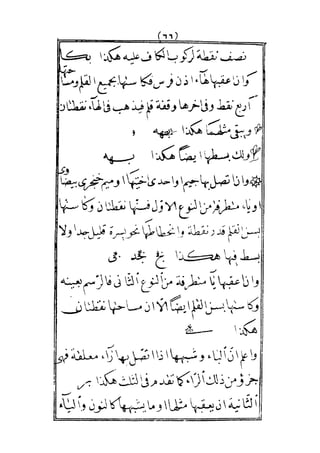 (٦٦)
نصف نقطة لركوب الكاف عليه هكذا بكا
وان عقبها هاء اذن فرس فكأسنها بجميع القلم ومساحتها
اربع نقط وفى اخرها وقفة قلم فيذهب فى الهاء نقطتان
ويبقى مثلهما هكذا بهه
ولك بسطها ايضا هكذا بهه
وان اتصل بها جيم او احدى اختيها او ميم خنجرى بيضاوى
او ياء متطرفة من النوع الاول فسنها نقطتان وكأسنها
بسن القلم قدر نقطة وانحطاطها نحو يسرة قليل جدا ولا
بسط فيها هكذا بج بجد بى
وان عقبها ياء متطرفة من النوع الثانى فالرسم بعينه
وكأسنها بسن القلم ايضا الا ان مساحتها نقطتان
هكذا
واعلم ان الباء وشبهها اذا اتصل بها راء معلقة فهو
جزؤ من ذلك الراء كما تقدم فى الثلث هكذا بر
الثانية ان يعقبها مثلها او ما يشبهها كالنون والياء